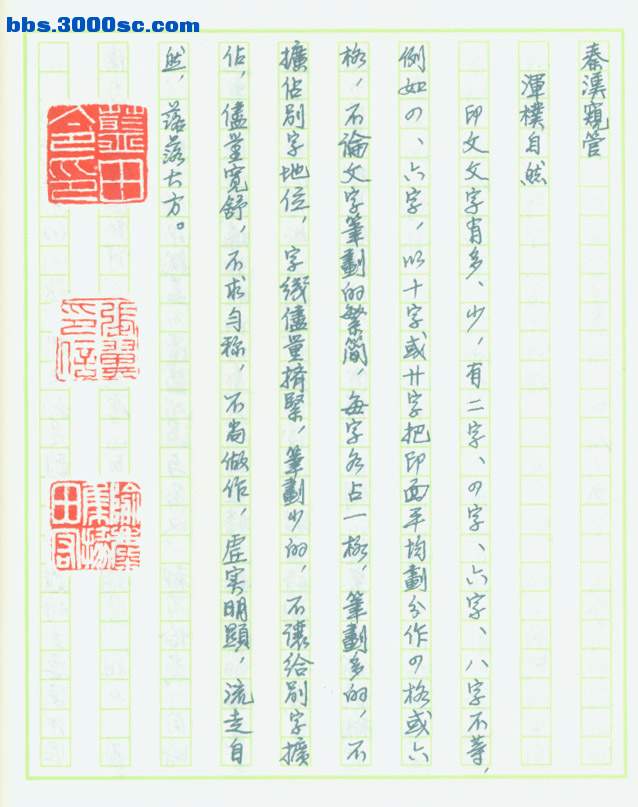 bbs.3000sc.com
秦漢窺管
渾樸自然
印文文字有多、少，有二字、四字、六字、八字不等，
例如四、六字，以十字或廿字把印面平均劃分作四格或六
格，不論文字筆劃的繁简，每字各占一格，筆劃多的，不
擴佔别字地位，字线儘量擠緊，筆劃少的，不讓给别字擴
佔，儘量宽舒，不求匀称，不尚做作，虚实明顯，流走自
然，落落大方。
田
印
張
翼
印信
田